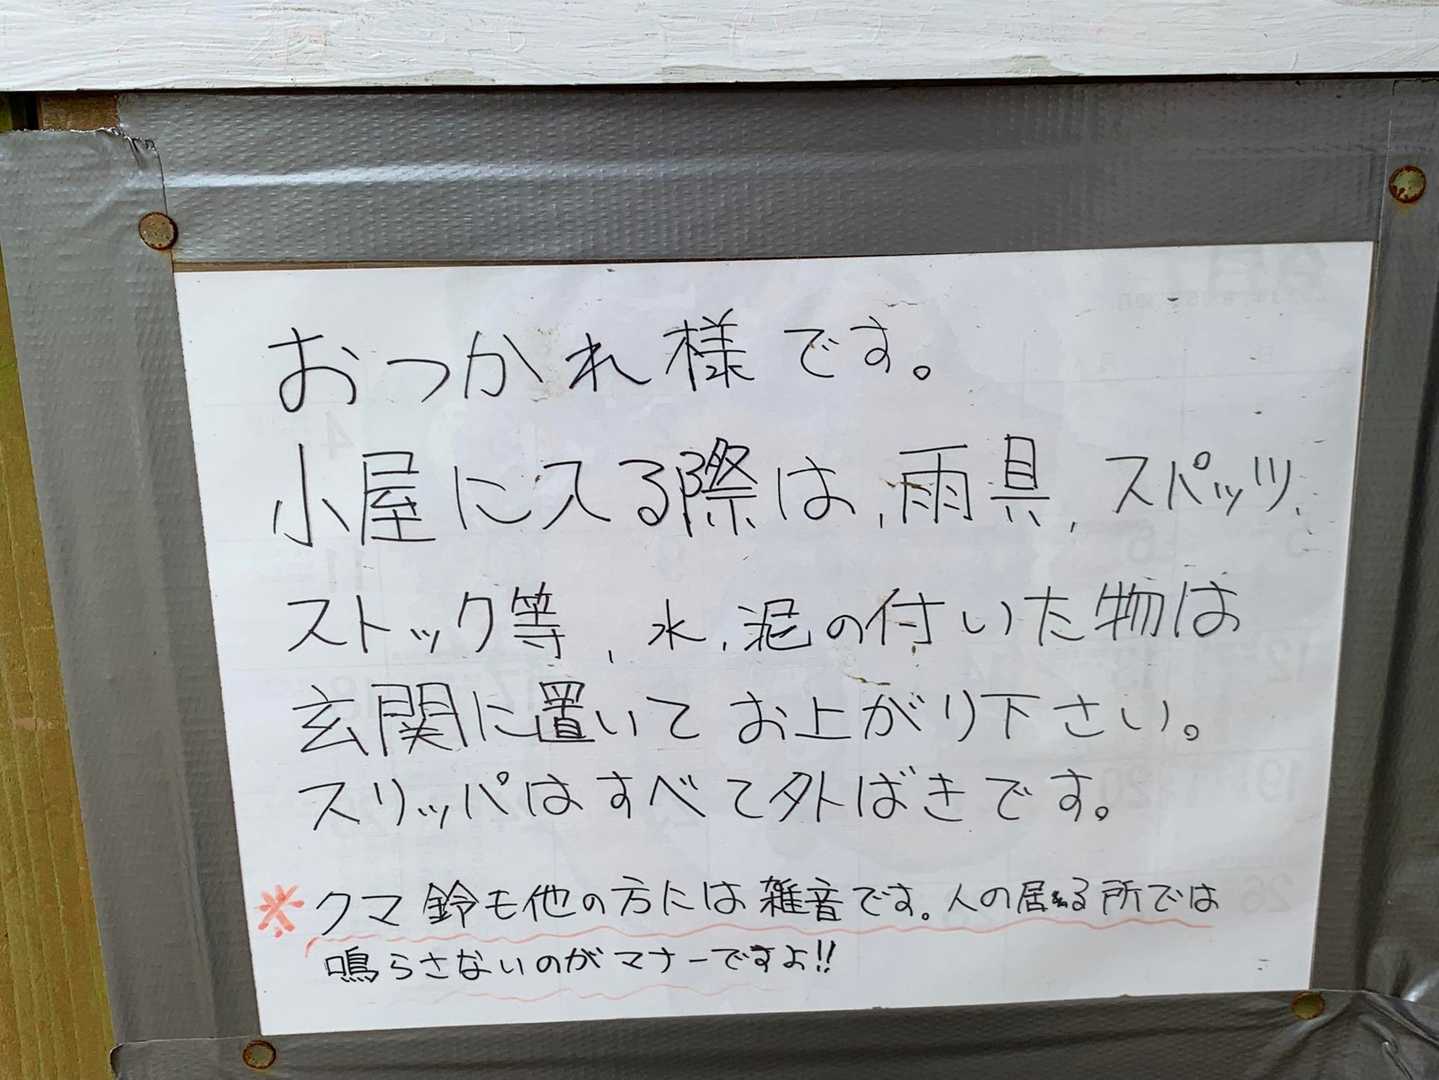 おつかれ様です。
小屋に入る際は、雨具、スパッツ、
ストック等、水、泥の付いた物は
玄関に置いてお上がり下さい。
スリッパはすべて外ばきです。
※クマ鈴も他の方には雑音です。人の居る所では
鳴らさないのがマナーですよ!!